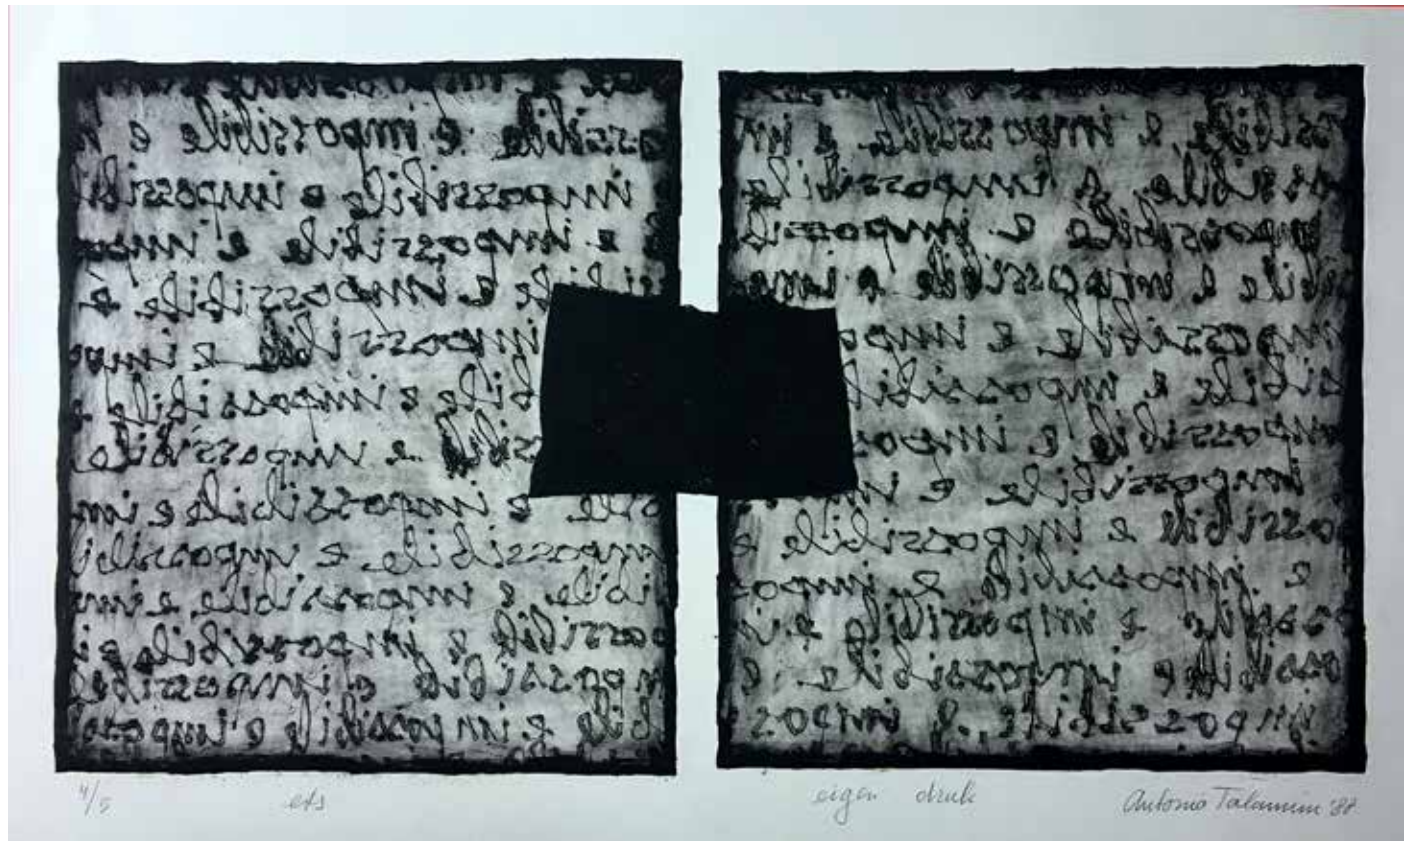 ossibile e impossibile e
e impossibile e impossibil
e impossibile e impos
ibile e impossibile è
impossibile e impo
bile e impossibile e
sibile e impossibile
bile e impossibile e im
impossibile e impossibil
ibile e impossibile e im
possibile e impossibile e i
mpossibile e impossibile
bile e impossibile e impos
ssibile e impossibile e im
ossibile e impossibile
impossibile e impossib
ibile e impossibile e imp
impossibile e impo
sibile e impossibil
impossibile e impos
impossibile e im
ossibile e impossibile e
e impossibile e impos
ossibile e impossibile e i
ossibile impossibile e
impossibile e impos
4/5 ets eigen druk Antonio Talamini '88